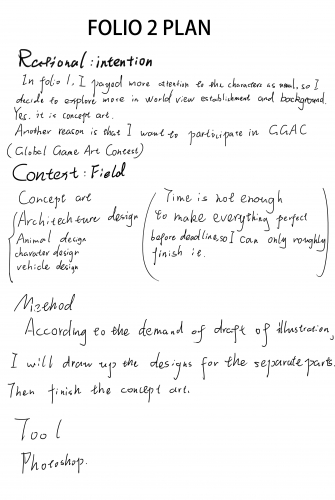 FOLIO 2 PLAN
Rcational : intention
In folio 1. I payed more attention to the characters as usual. so I
decide to explore more in world view establishment and background.
Yes. it is concept art.
Another reason is that I want to participate in GGAC
(Global Game Art Contest)
Content : Field
Concept art
Architechture design
Animal design
charater design
vehicle design
(Time is not enough
to make everything perfect
before deadline, so I can only roughly
finish it.)
Method
According to the demand of draft of illustration,
I will draw up the designs for the separate parts.
Then finish the concept art.
Tool
Photoshop.